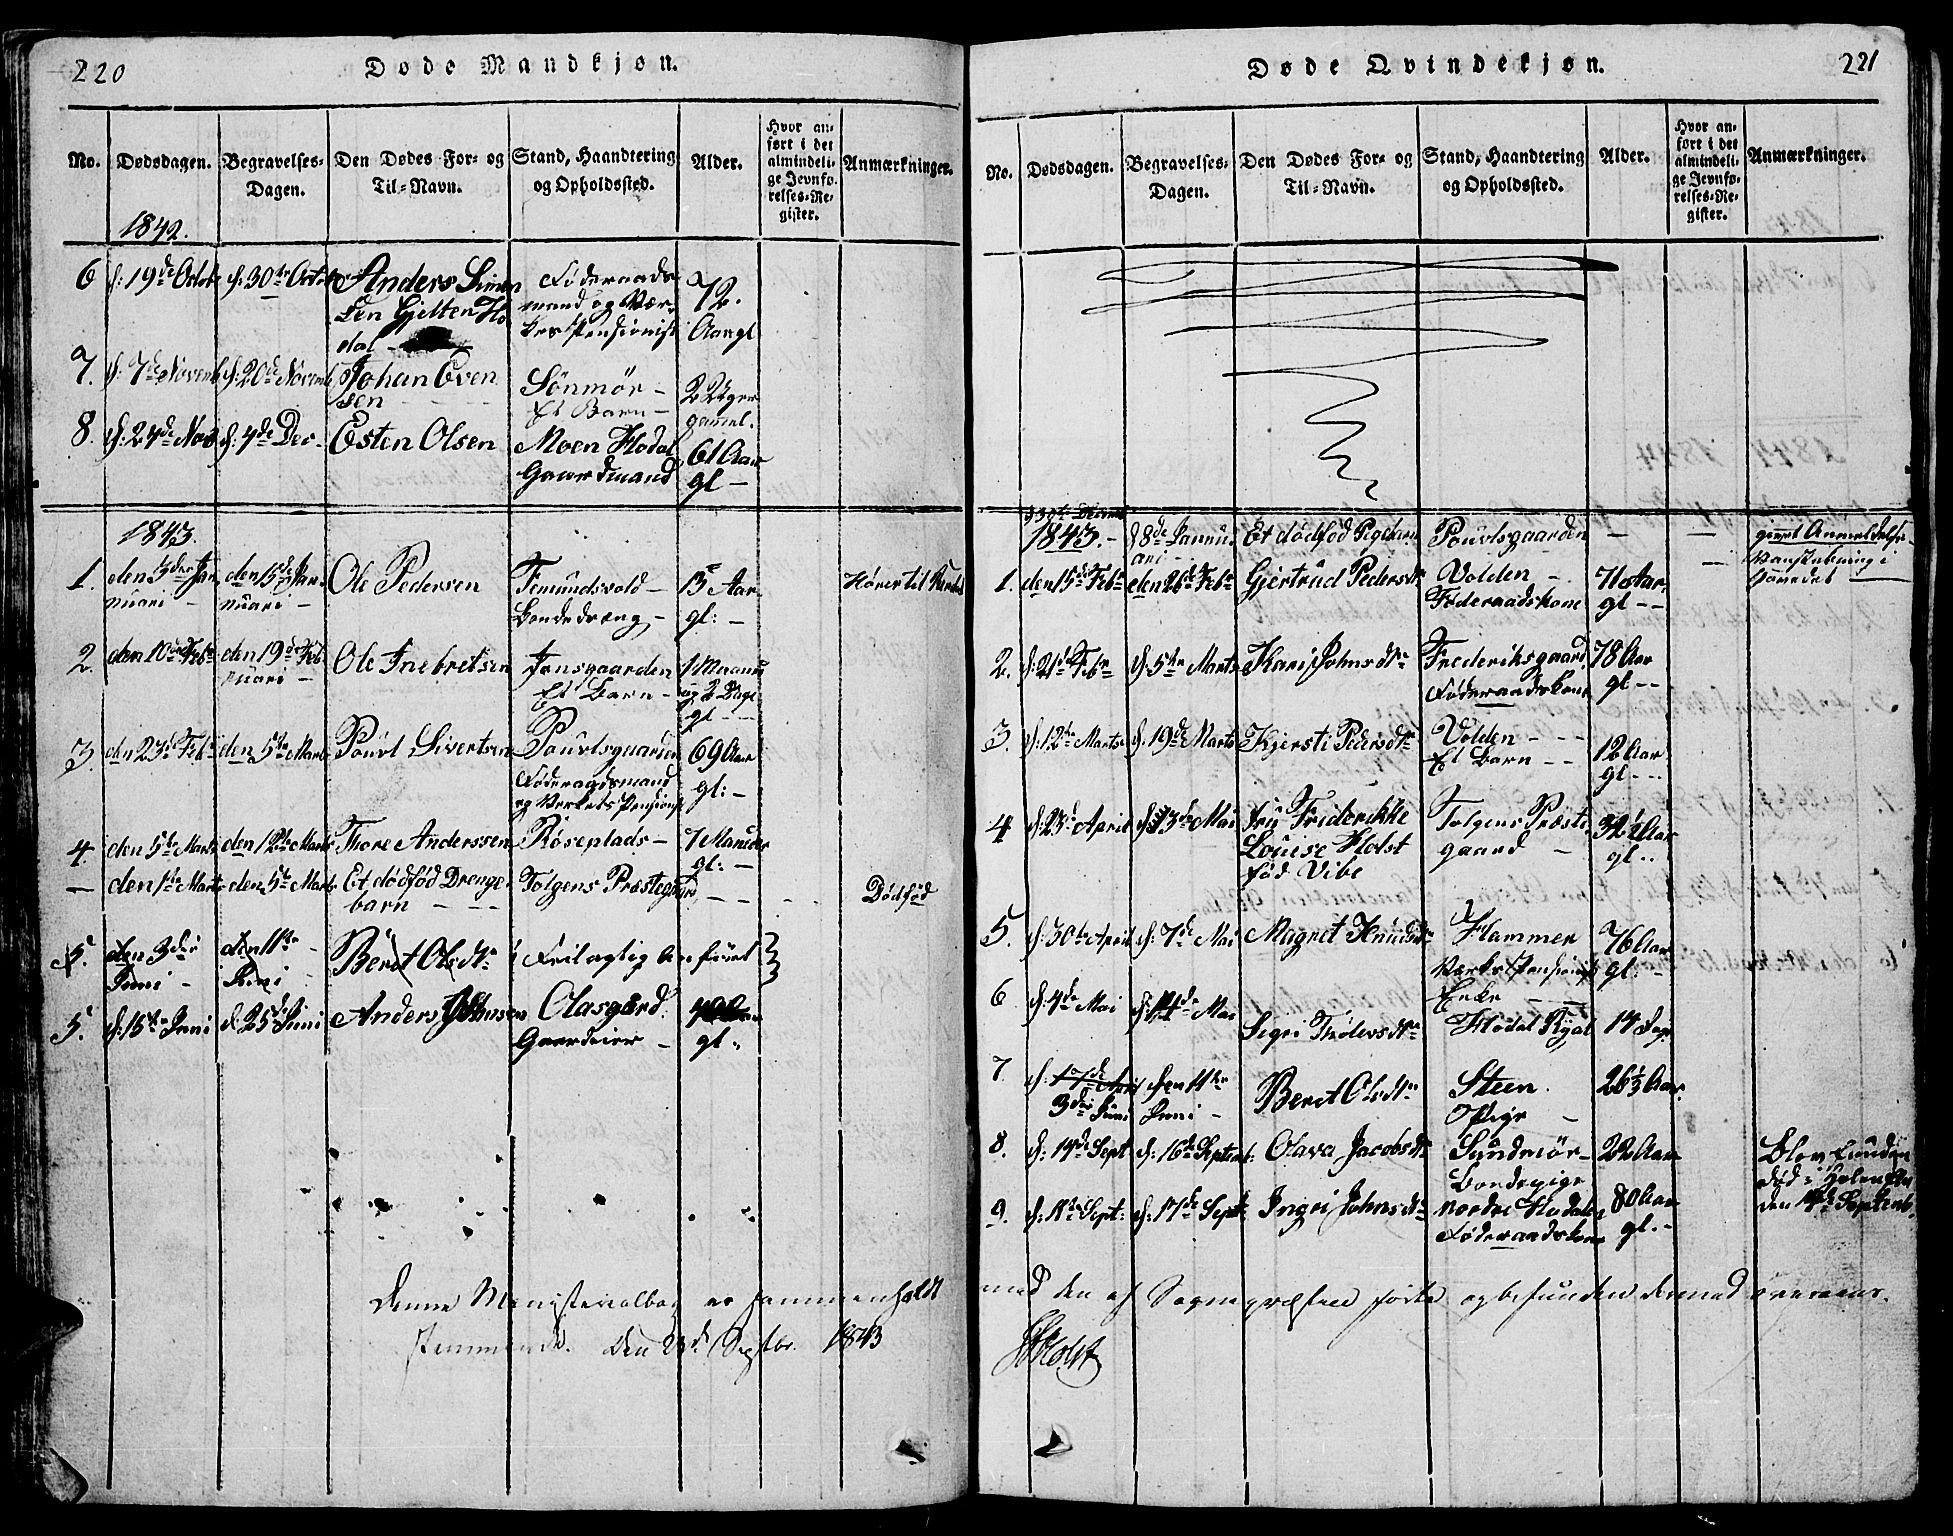 220
Døde Mandkjøn.
No. Dødsdagen. Begravelses-Dagen. Den Dødes For- og Til-Navn. Stand, Haandtering og Opholdssted. Alder. Hvor anført i det almindelige Jevnførelses-Register. Anmærkninger.
1842.
6 d: 19de Octob d: 30te Octob Anders Simen
sen Gjelten Ho
dal
Føderaads
mand og Vær
kes Pensionist
72.
Aar gl
7. d: 7de Novemb d: 20de Novemb Johan Even
sen
Sønmør –
Et Barn –
2 Uger
gammel.
8. d: 24de Nov d: 4de Dec – Esten Olsen Moen Hodal
Gaardmand
61 Aar
gl –
1843.
1. den 3die Ja
nuari – den 15de Ja
nuari – Ole Pedersen Femundsvold –
Bondedreng –
15 Aar
gl: –
Hører til
2. den 10de Febr den 19de Feb
ruari – Ole Inebretsen Jonsgaarden
Et Barn –
1 Maaned
og 2 Dage
gl –
3. den 23de Febr den 5te Marts Pouvl Sivertsen Pouvlsgaarden
Føderaadsmand
og Verkets Pensionist
69 Aar
gl: –
4. den 5te Marts den 12te Marts Thore Anderssen Røseplads – 7 Maaneder
gl: –
– den 1ste Marts – den 5te Marts Et dødfød Drenge
barn – Tolgens Præstegaard – – Dødfød
5. den 3die
Juni – den 11te
Juni Berit Olsdtr Feilagtig anført
5. d: 15te Juni d: 25de Juni Anders Johnsen Olasgård.
Gaardeier –
gl:
Denne Ministerialbog er sammenholdt
stemmende. den 23de Septbr. 1843
Døde Qvindekjøn.
221
No. Dødsdagen. Begravelses-Dagen. Den Dødes For- og Til-Navn. Stand, Haandtering og Opholdssted. Alder. Hvor anført i det almindelige Jevnførelses-Register. Anmærkninger.
d 30te Decemb
1843. – d 8de Janu
ari – Et dødfød Pigebarn Pouvlsgaarden – – givet Anmeldelse
1. den 15de Febr den 26de Febr Gjertrud Pedersdtr Volden –
Føderaadskone
71 Aar
gl – –
2. d: 21de Febr d: 5te Marts Kari Johnsdtr Frederiksgaard
Føderaadskone
78 Aar
gl – –
3. d: 12te Marts d: 19de Marts Kjersti Pedersdtr Volden – –
Et Barn – –
12 Aar
gl – –
4 d: 23de April d: 3de Mai Fru Friderikke
Louise Holst
fød Vibe
Tolgens Præste
gaard –
32½ Aar
gl. .
5. d: 30te April d: 7de Mai Magnet Knudsdtr Hammer
Værks Pensionist
Enke
76 Aar
gl: –
6 d: 4de Mai d: 14de Mai Sigri Thølersdtr Hodal 14 Dage
7. 3die Juni den 11te
Juni – Berit Olsdtr Steen.
Pige –
26½ Aar
8. d: 14de Sept d: 16de Septemb: Olava Jacobsdtr Sundmør –
Bondepige
22 Aar
Blev funden
død i
den 14de Septemb.
9. d: 11te Sept: d: 17de Sept Ingri Johnsdtr Nordre Hodalen
Føderaadskone
80 Aar
gl. –
med den af Sognepræsten førte og befunden dermed overeens-
Holst